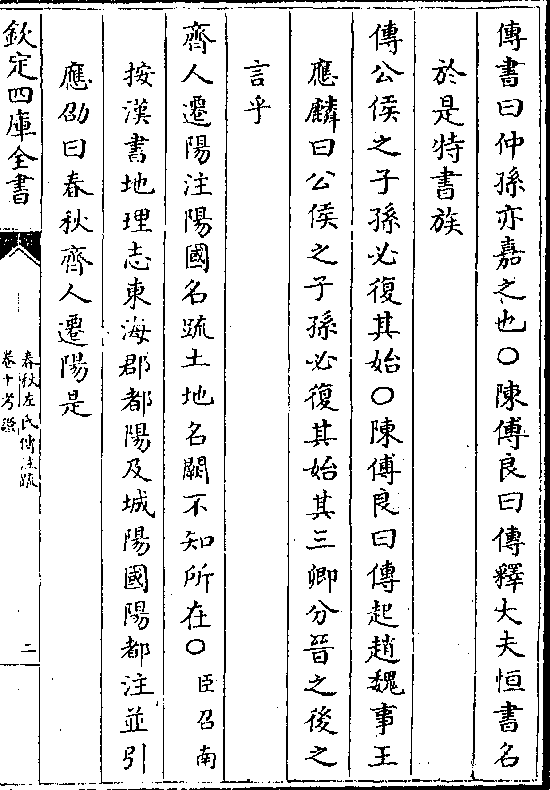 傳書曰仲孫亦嘉之也○陳傅良曰傳釋大夫恒書名
於是特書族
傳公侯之子孫必復其始○陳傅良曰傳起趙魏事王
應麟曰公侯之子孫必復其始其三卿分晉之後之
言乎
齊人遷陽注陽國名疏土地名闕不知所在○臣召南
按漢書地理志東海郡都陽及城陽國陽都注並引
應劭曰春秋齊人遷陽是
欽定四庫全書
春秋左氏傳注疏
卷十考證
二